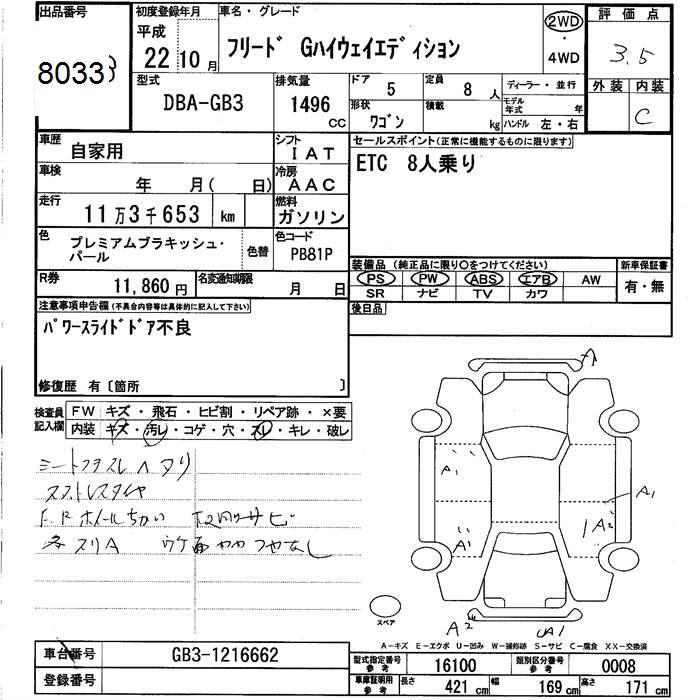 出品番号
初度登録年月
車名・グレード
評価点
8033
平成
22 10 月
フリード Gハイウェイエディション
2WD
・
4WD
3.5
型式
DBA-GB3
排気量
1496
CC
ドア
5
定員
8 人
ディーラー・並行
外装
内装
形状
ワゴン
積載
kg
モデル年式
年
ハンドル 左・右
C
車歴
自家用
シフト
IAT
セールスポイント(正常に機能するものに限ります)
車検
年 月( 日)
冷房
AAC
ETC 8人乗り
走行
11万3千653 km
燃料
ガソリン
色
プレミアムブラキッシュ・
パール
色替
色コード
PB81P
装備品 (純正品に限り○をつけてください)
新車保証書
R券
11,860円
名変通知期限
月 日
PS PW ABS エアB AW
有・無
SR ナビ TV カワ
注意事項申告欄(不具合内容等は具体的に記入して下さい)
後日品
パワースライドドア不良
修復歴 有〔箇所 〕
検査員
記入欄
FW キズ・飛石・ヒビ割・リペア跡・×要
内装 キズ・汚レ・コゲ・穴・スレ・キレ・破レ
F.R ホイールちがい
各 スリA
A
A1
A1
A2
A1
A2
UA1
スペア
A-キズ E-エクボ U-凹み W-補修跡 S-サビ C-腐食 XX-交換済
車台番号
GB3-1216662
型式指定番号
参考
16100
類別区分番号
参考
0008
登録番号
車庫証明用
参考
長さ
421 cm
幅
169 cm
高さ
171 cm